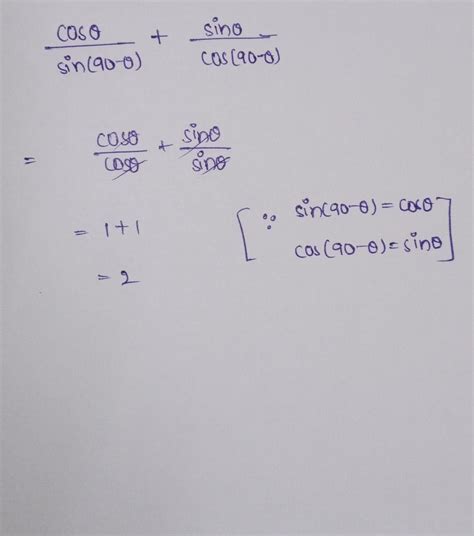 cosθ/sin(90-θ) + sinθ/cos(90-θ)
= cosθ/cosθ + sinθ/sinθ
= 1+1
= 2
[∵ sin(90-θ)=cosθ
cos(90-θ)=sinθ]